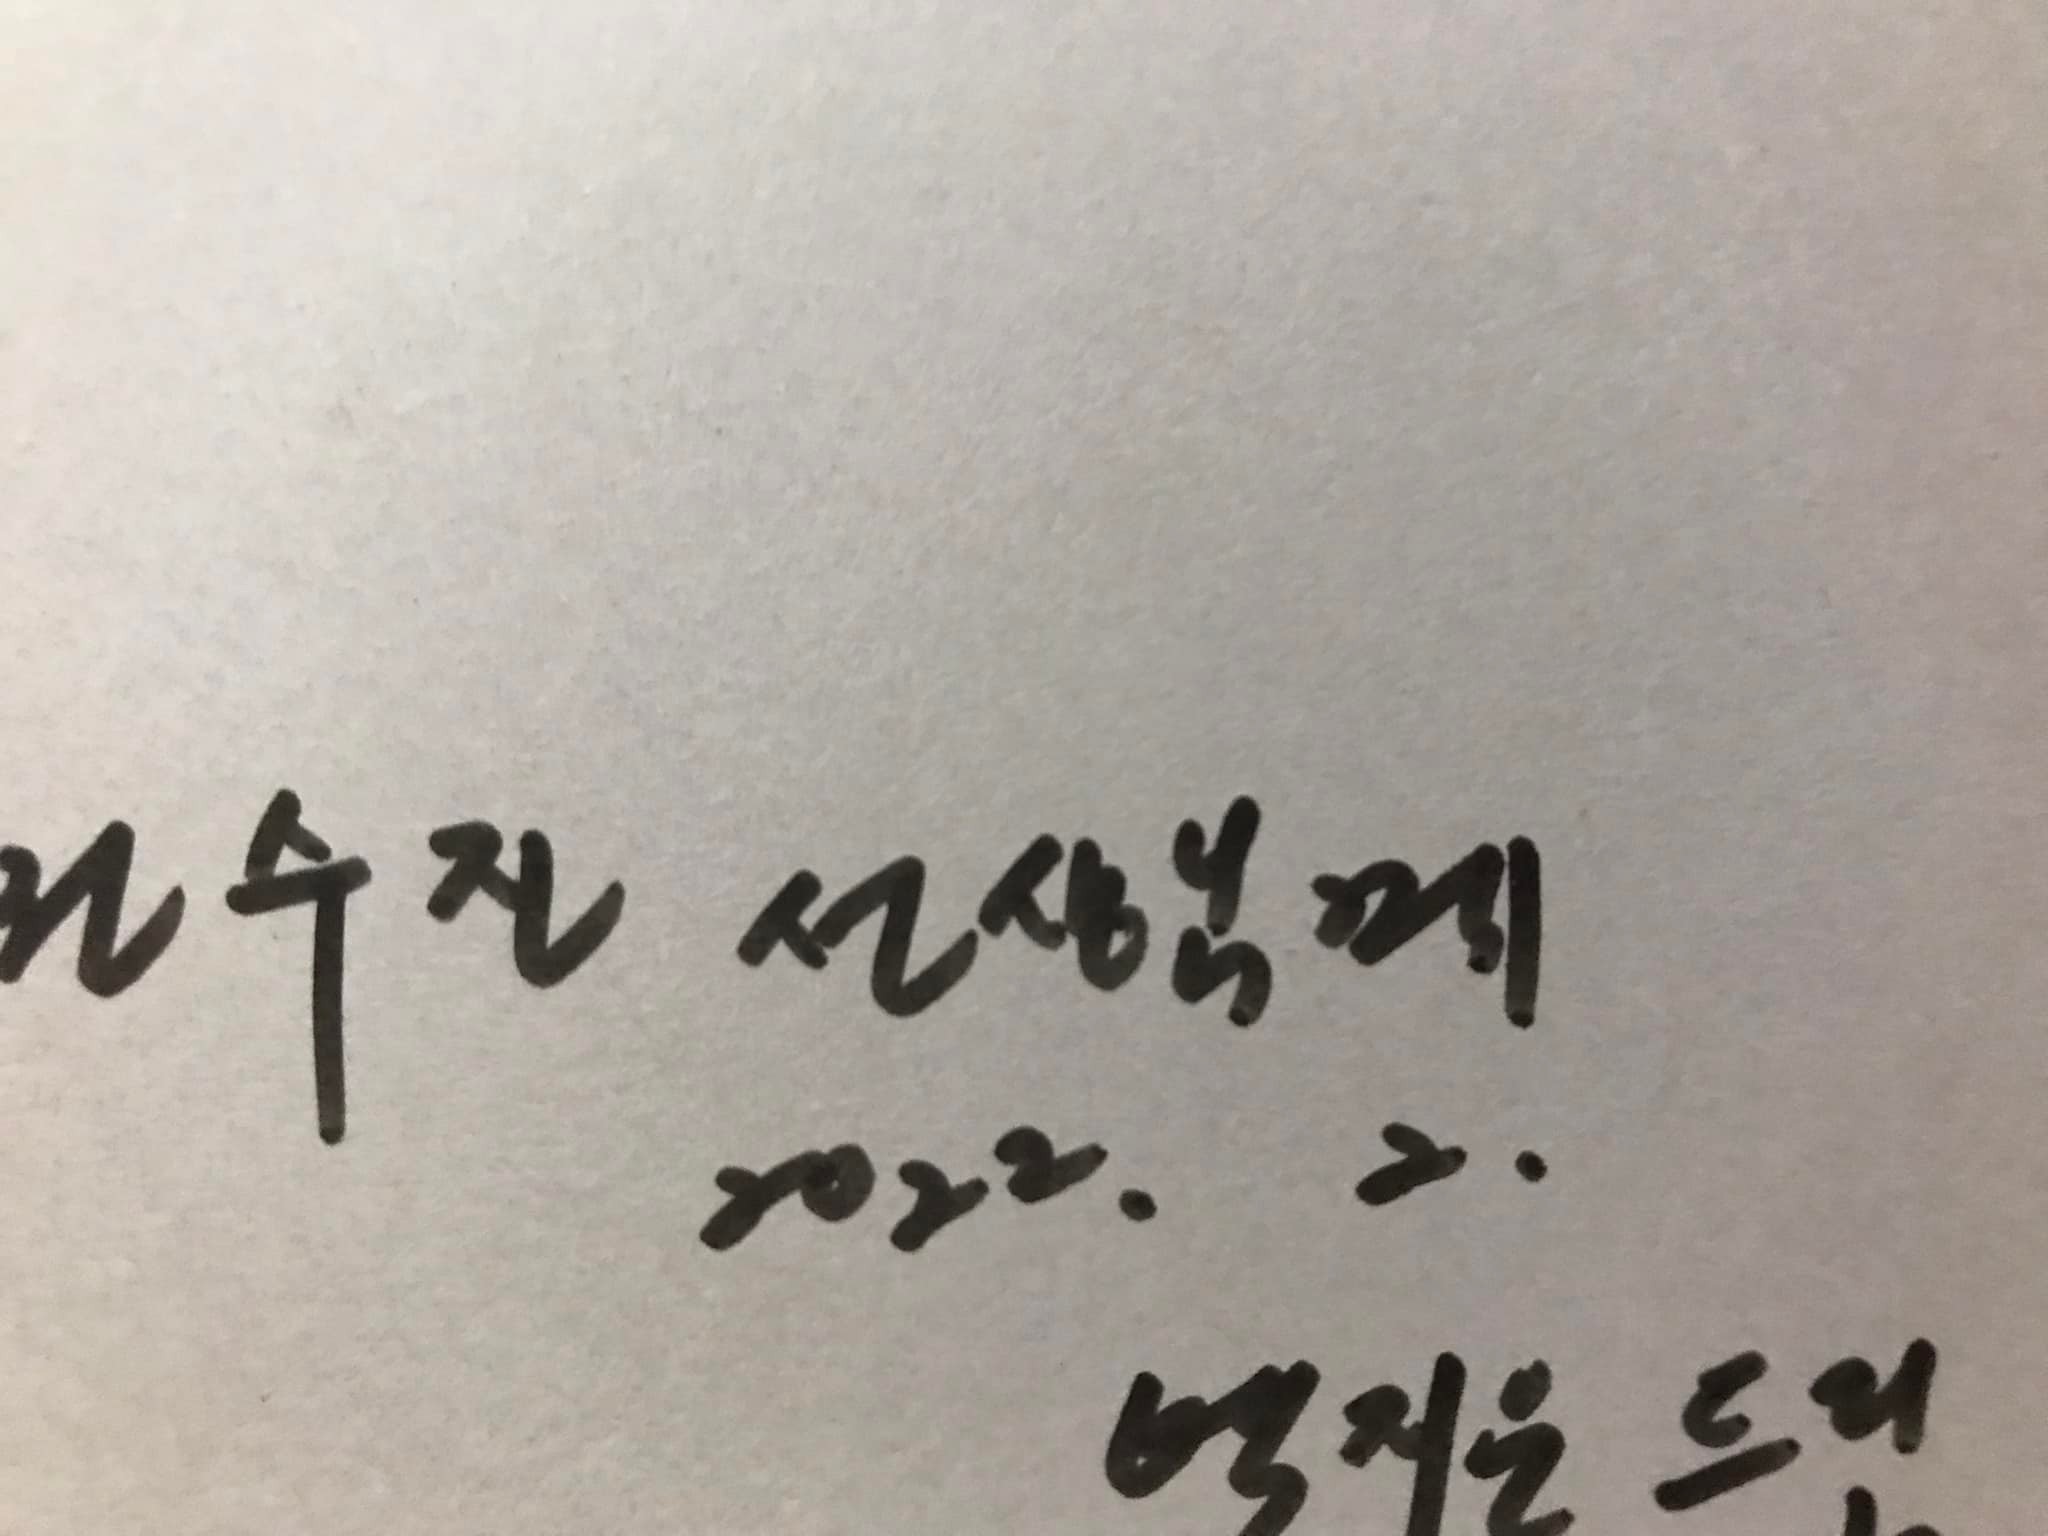 수진 선생님께
2022. 2.
백지운 드림